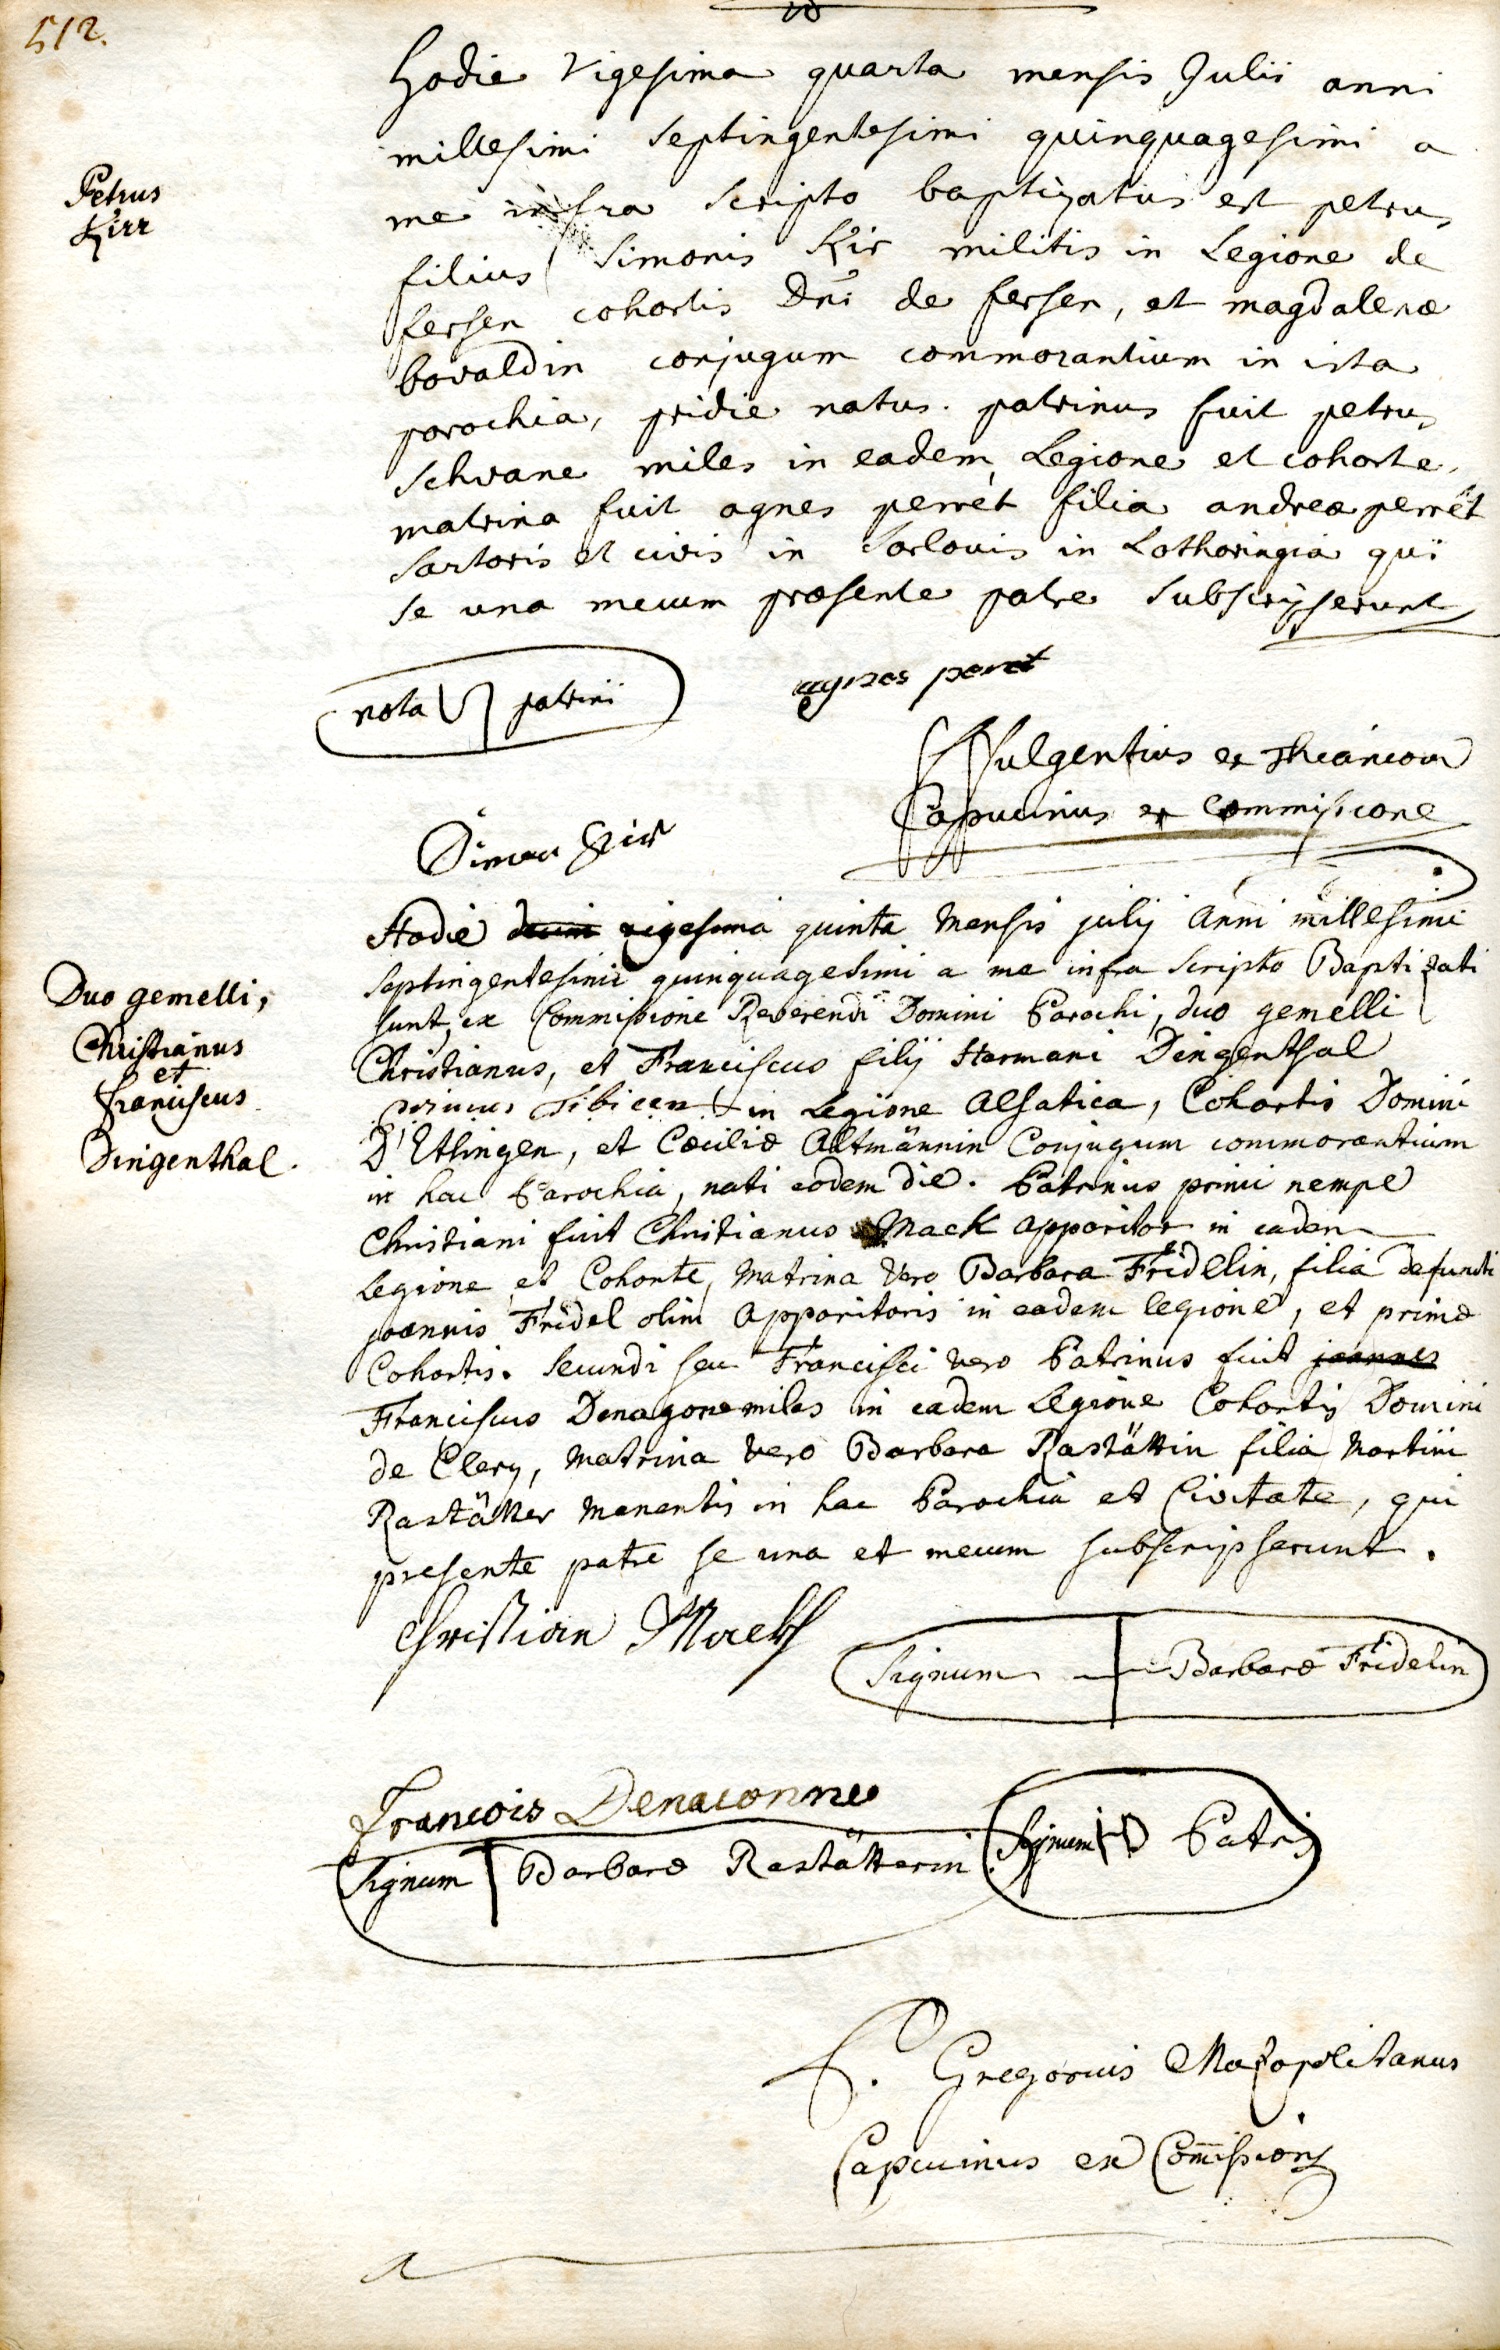 512.
Hodie Vigesima quarta mensis Julii anni
millesimi Septingentesimi quinquagesimi a
Petrus
Kirr
me infra scripto baptizatus est petrus
filius Simonis Kir militis in Legione de
fersen cohortis Dni de fersen, et magdalenæ
bovaldin conjugum commorantium in ista
parochia, pridie natus. patrinus fuit petrus
schvane miles in eadem Legione et cohorte,
matrina fuit agnes perrét filia andreæ perrét
sartoris et civis in Sarlouis in Lotharingia qui
se una mecum præsente patre subscrypserunt
nota patrini
agnes peret
Fulgentius ex
Capucinus ex Commissione
Simon Kir
Hodie vigesima quinta Mensis julij Anni millesimi
septingentesimi quinquagesimi a me infra scripto Baptizati
sunt, ex Commissione Reverendi Domini Parochi, duo gemelli
Duo gemelli,
Christianus
et
franciscus
Dingenthal.
Christianus, et Franciscus filij Harmani Dingenthal
primus Tibicen in Legione Alsatica, Cohortis Domini
D'Etlingen, et Cæciliæ Altmännin Conjugum commorantium
in hac Parochia, nati eodem die. Patrinus primi nempe
Christiani fuit Christianus Mack Apparitor in eadem
Legione et Cohorte, Matrina Vero Barbara Fridelin, filia defuncti
joannis Fridel olim Apparitoris in eadem legione, et primæ
Cohortis. Secundi seu Francisci vero Patrinus fuit joannes
Franciscus Denagone miles in eadem Legione Cohortis Domini
de Clery, Matrina Vero Barbara Rastättin filia Martini
Rastätter Manentis in hac Parochia et Civitate, qui
presente patre se una et mecum subscripserunt.
Christian Mack
Signum Barbaræ Fridelin
Francois Denaconne
Signum Barbaræ Rastätterin
Signum Patris
F. Gregorius
Capucinus ex Commissione